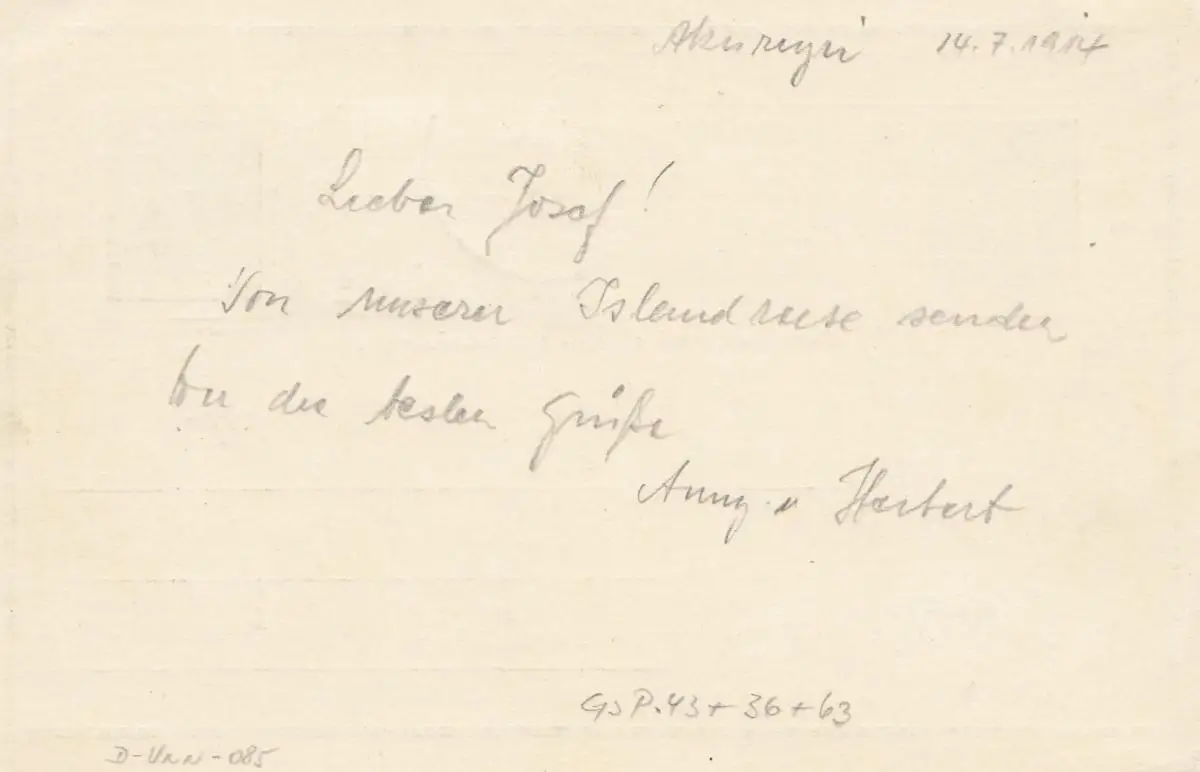 Akureyri 14.7.1914
Lieber Josef!
Von unserer Islandreise senden
wir die besten Grüße
Anny u Herbert
GsP.43 + 36 + 63
D-Unn-085